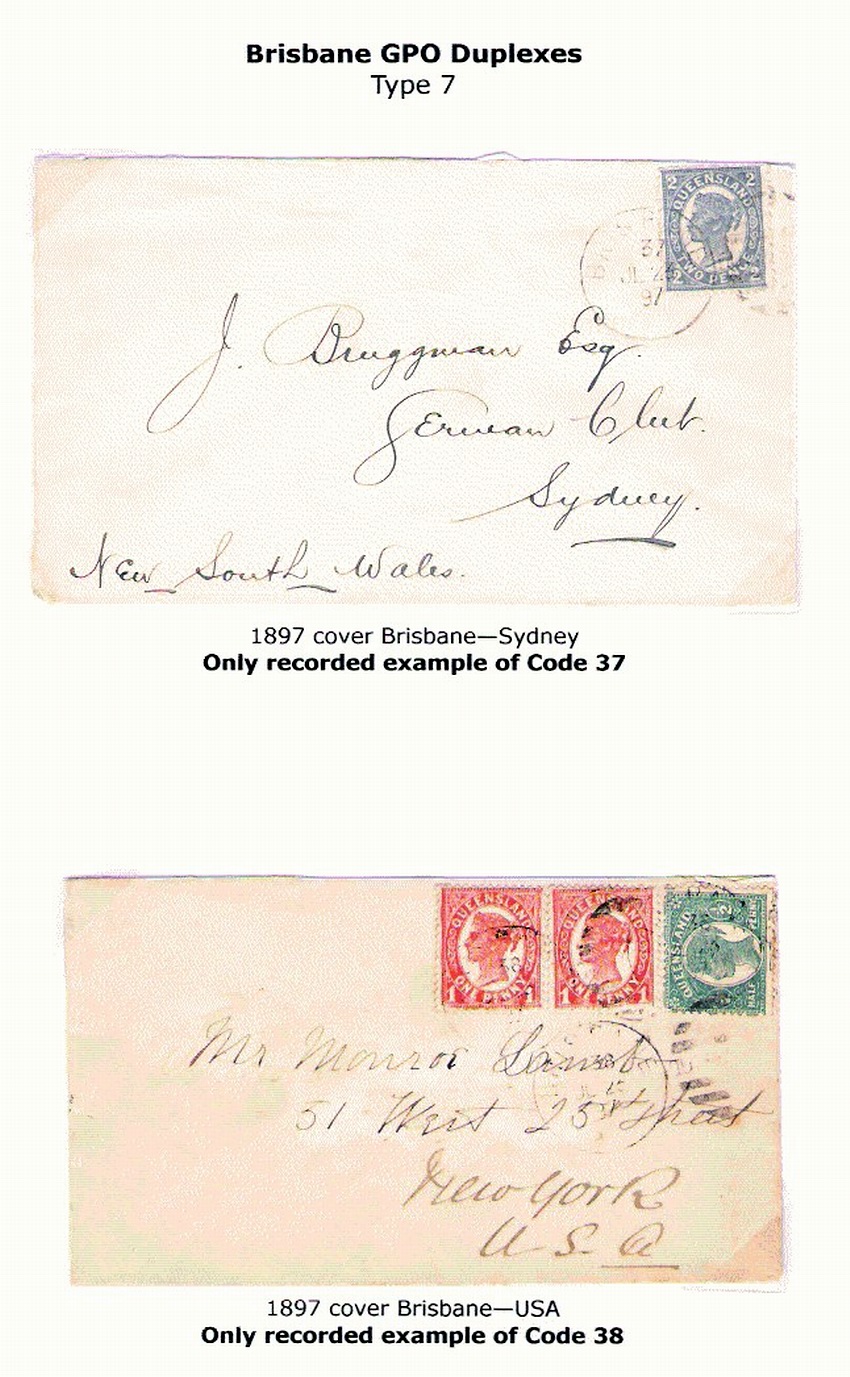 Brisbane GPO Duplexes
Type 7
2 2
QUEENSLAND
TWO PENCE
2 2
37
JL 23
97
J. Bruggman Esq.
German Club.
Sydney.
New South Wales.
1897 cover Brisbane—Sydney
Only recorded example of Code 37
QUEENSLAND
ONE PENNY
1
QUEENSLAND
ONE PENNY
1 1
QUEENSLAND
HALF
Mr Monroe
51 West 23 Street
New York
U. S. A
1897 cover Brisbane—USA
Only recorded example of Code 38